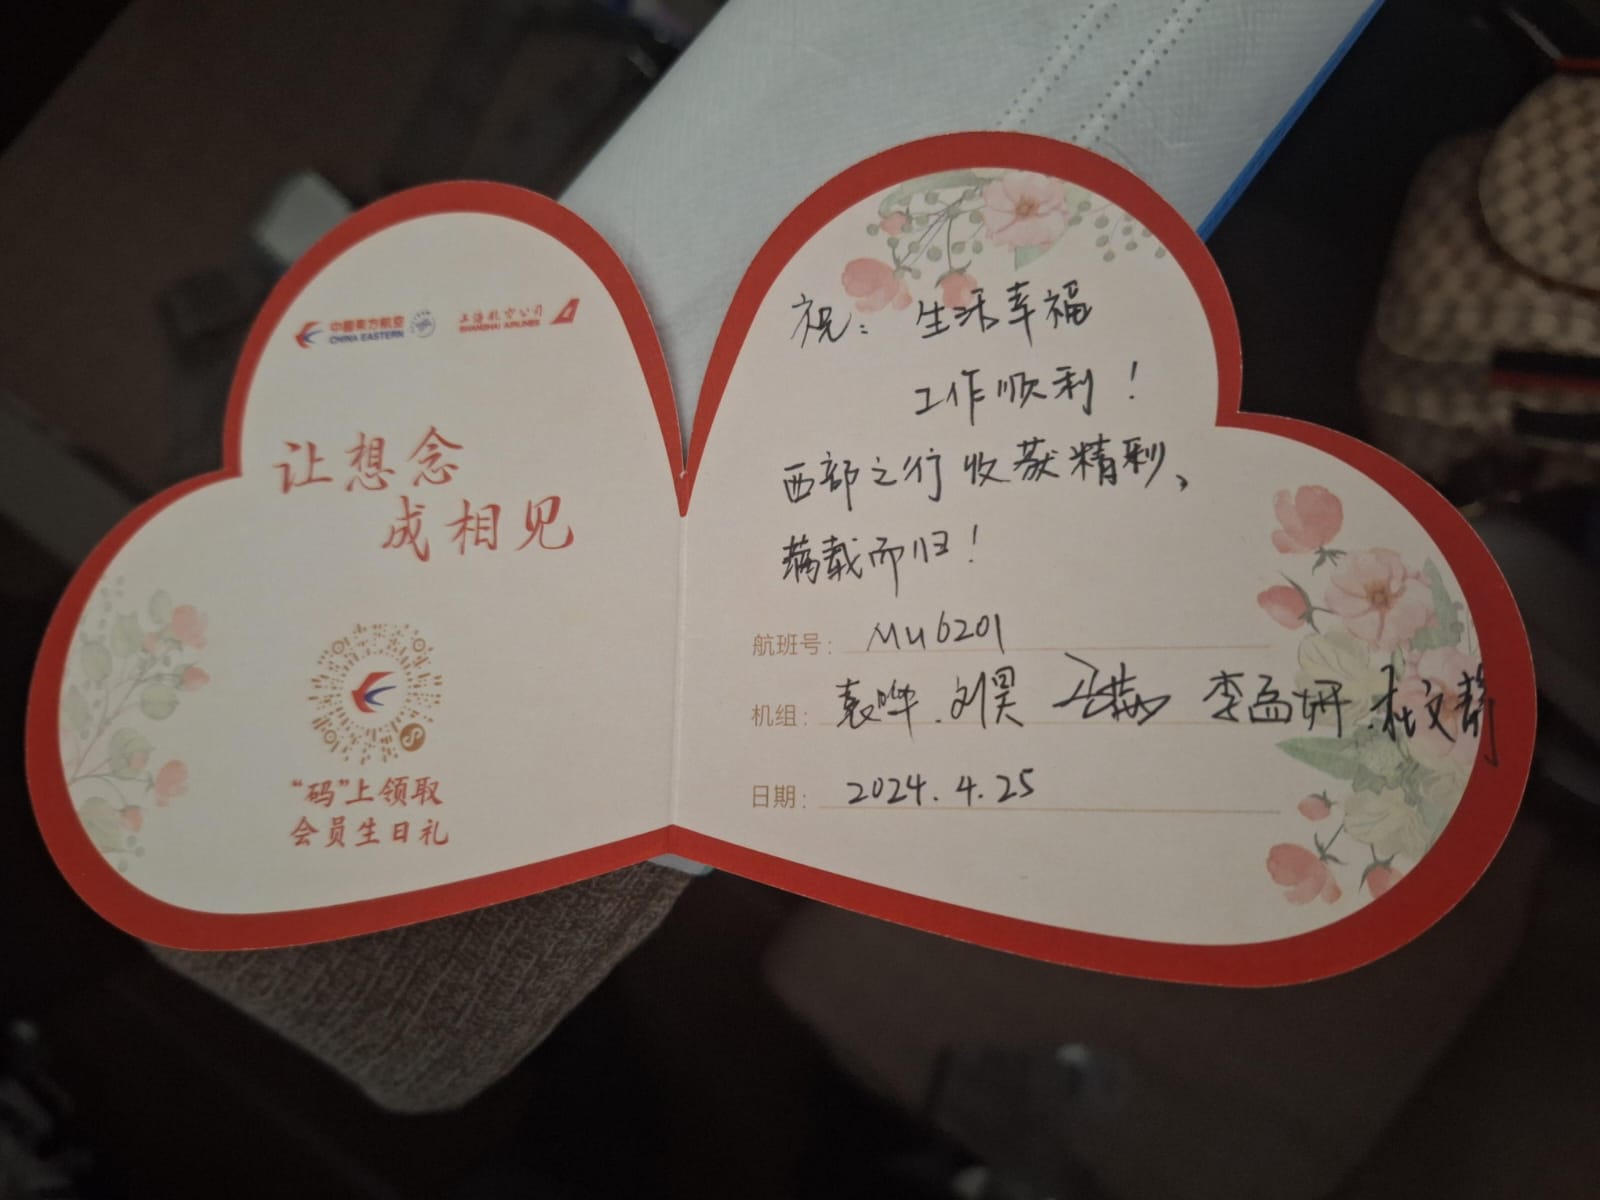 中國東方航空
CHINA EASTERN
上海航空公司
SHANGHAI AIRLINES
让想念
成相见
“码”上领取
会员生日礼
祝：生活幸福
工作顺利！
西部之行收获精彩、
满载而归！
航班号：MU6201
机组：袁晔.刘昊 李孟妍.杜文静
日期：2024.4.25